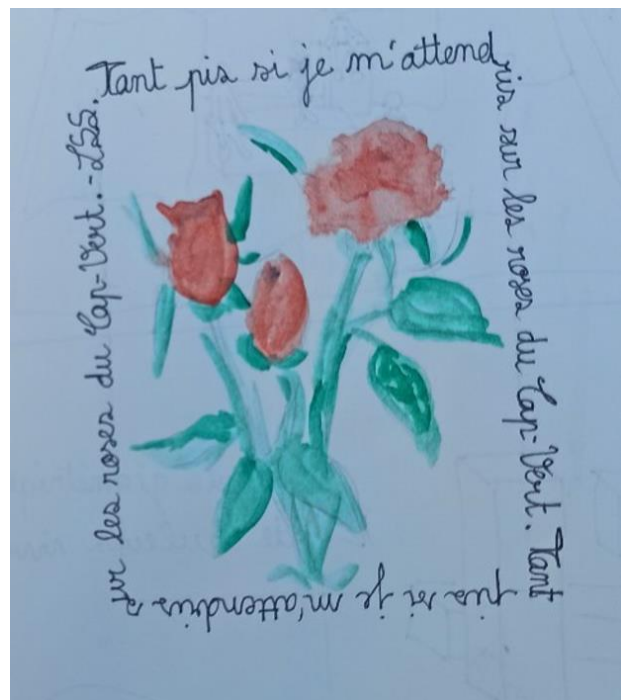 Tant pis si je m'attend
ris sur les roses du Cap-Vert. Tant
pis si je m'attendris s
ur les roses du Cap-Vert.-LSS.